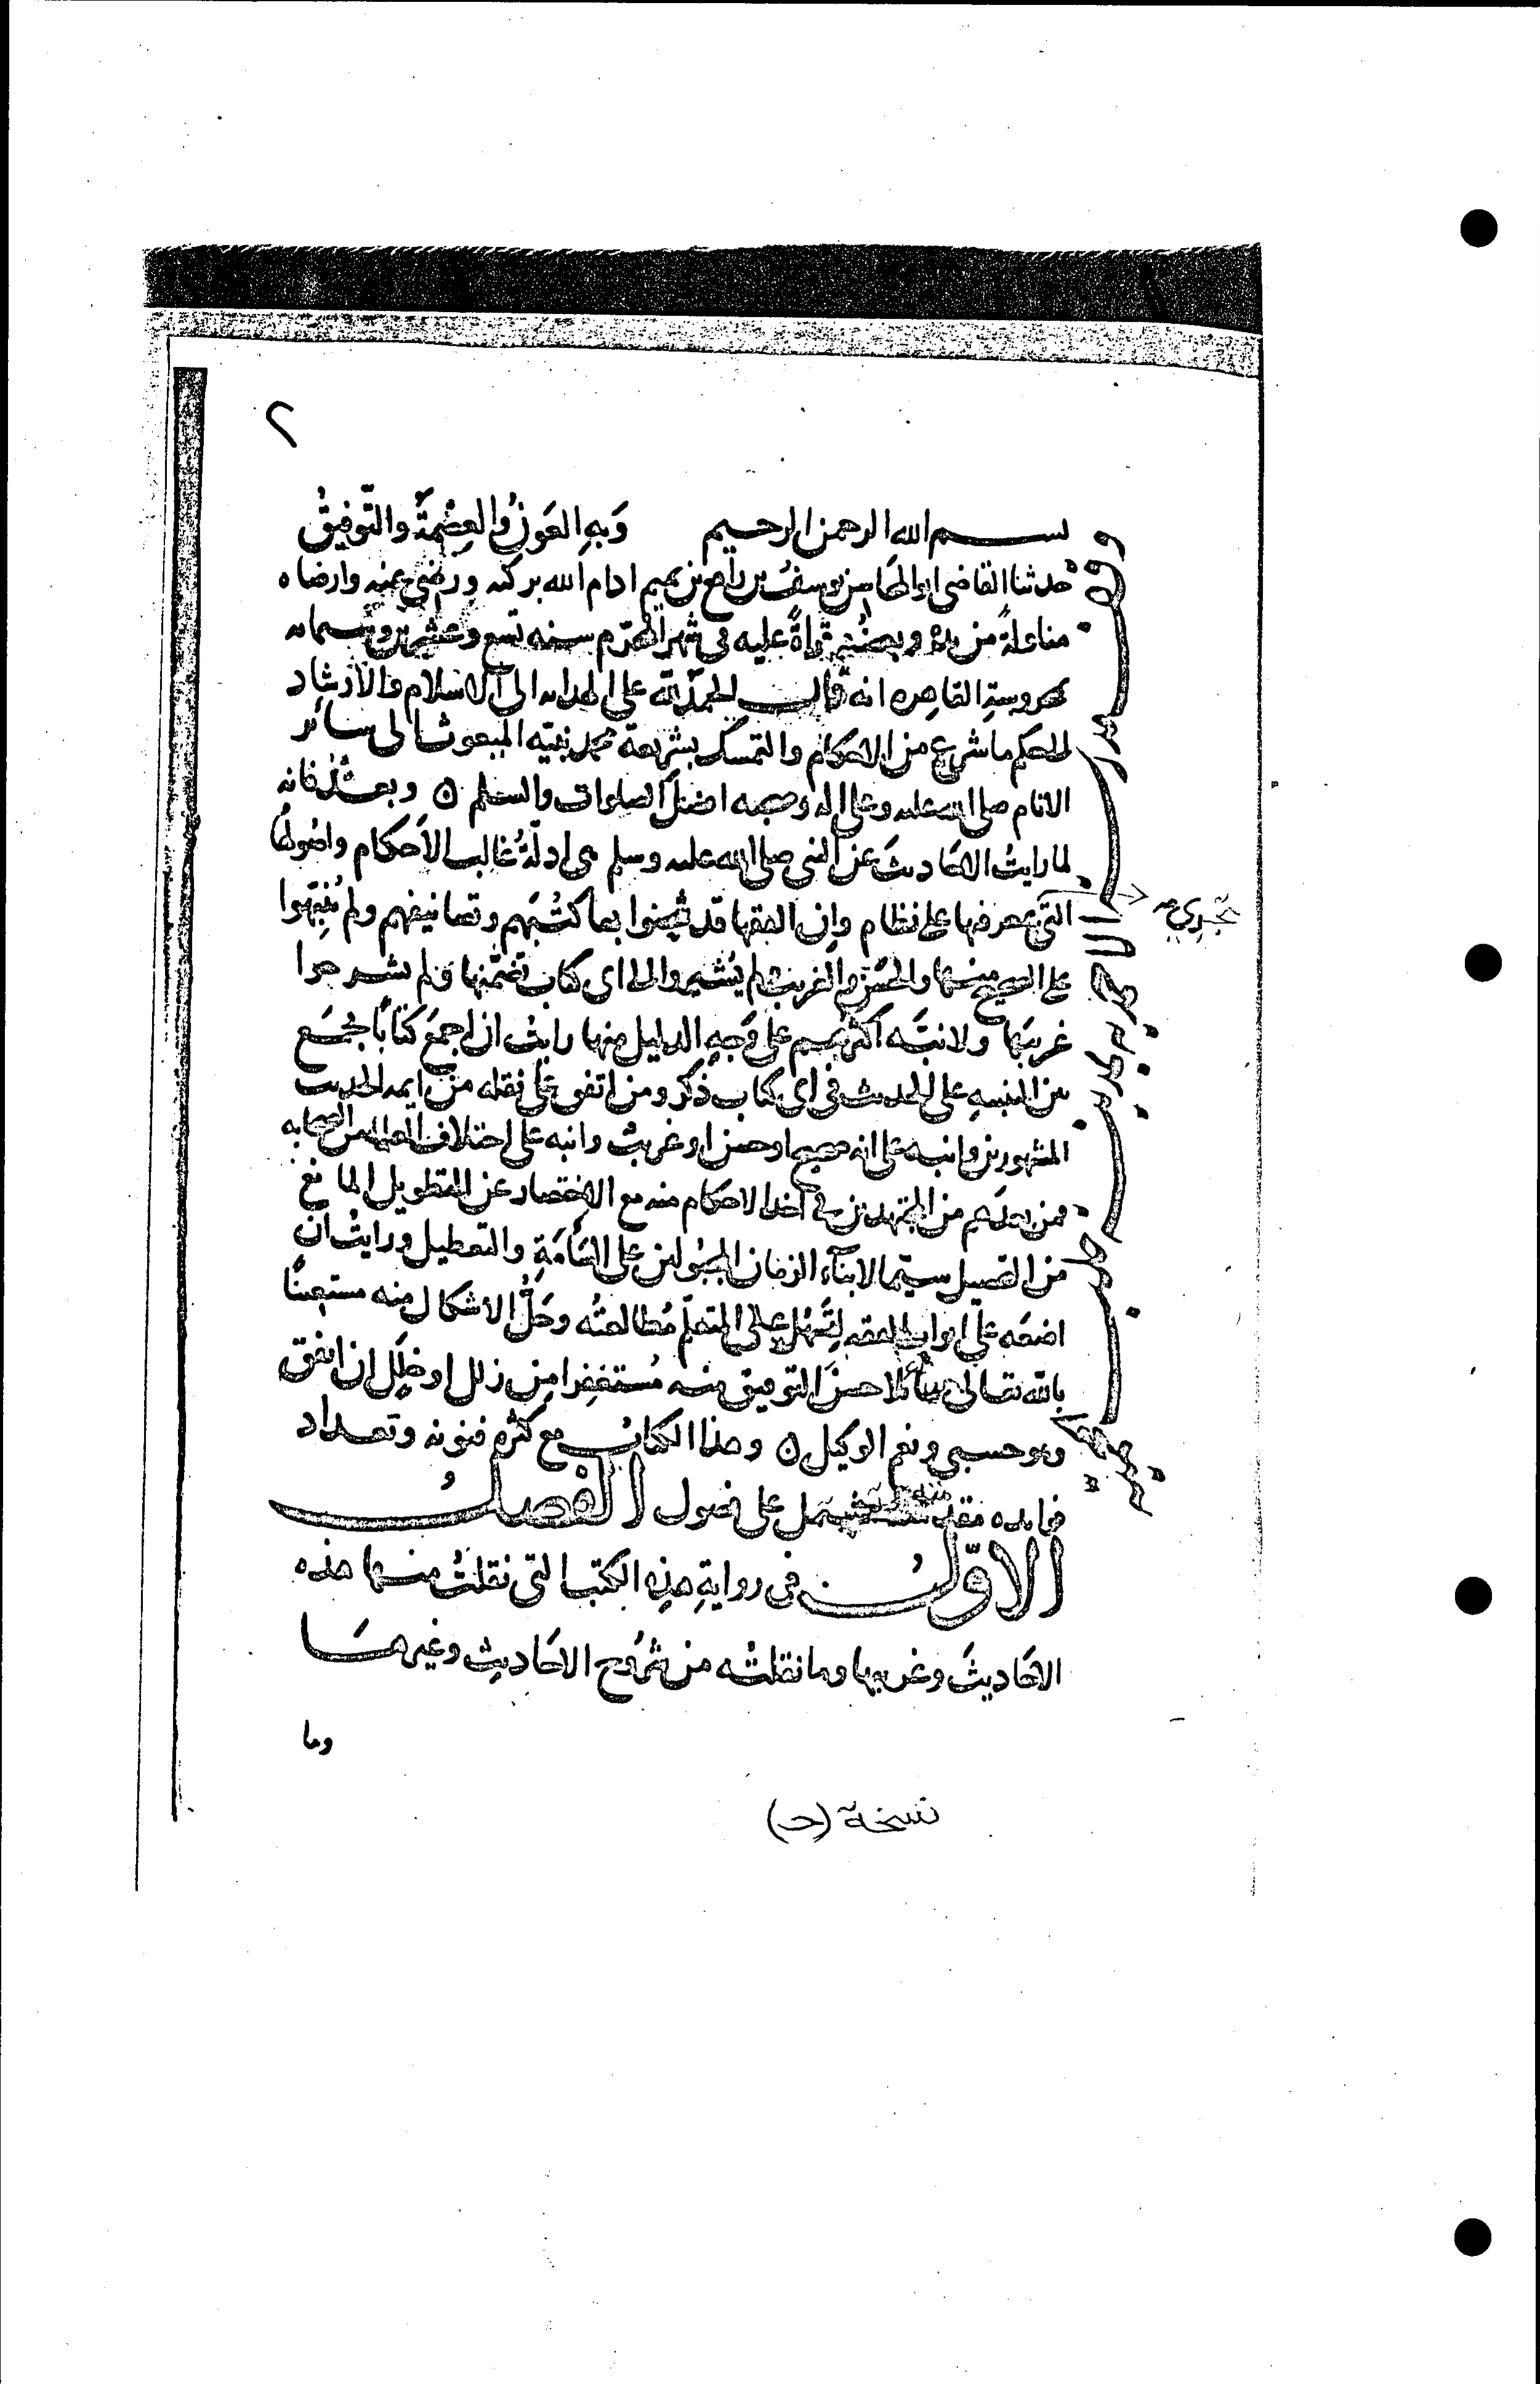 ٢
بسم الله الرحمن الرحيم وَبهِ العَونُ والعِصْمَةُ والتّوفيقُ
حدثنا القاضي ابو المحاسن يوسفُ بن رافع بن تميم ادام الله بركته ورضي عنه وارضاه
مناولةً من يده وبعضُه قراةً عليه في شهر المحرّم سنه تسع وعشرين وستمايه
بمحروسةِ القاهره انه قال الحمدُ لله على الهدايه الى الاسلام والارشاد
لحكم ما شرع من الاحكام والتمسك بشريعة محمد نبيّه المبعوث الى سائر
الانام صلى الله عليه وعلى اله وصحبه افضل الصلوات والسلم ه وبعدُ فانه
لما رايتُ الاحَاديث عن النبي صلى الله عليه وسلم هي ادلّةُ غالب الاَحكام واصُولهَا
التي معرفتها على نظام وان الفقها قد شحنوا بها كتُبَهم وتصانيفهم ولم يُنَبّهوا
على الصحيح منها والحسَن والغريب ولم يُشيروا الى اي كتاب تضمّنها ولم يشرحوا
غريبَها ولا نبَّه اكثرهم على وَجهِ الدليل منها رايتُ ان اجمَع كتابًا يجمَع
بين التنبيهِ على الحديث في اي كتاب ذكر ومن اتفق على نقله من ايمه الحديث
المشهورين وانبه على انه صحيح او حسن او غريب وانبه على اختلاف العلما من الصحابه
فمن بعدهم من المجتهدين في اخذ الاحكام منه مع الاختصار عن التطويل المانع
من التحصيل سيّما لابنآء الزمان المجبُولين على السّامَةِ والتعطيل ورايتُ ان
اضعَه على ابواب الفقه ليَسْهُل على المتعلّم مُطالعتُه وحَلُّ الاشكال منه مستعينًا
بالله تعالى سائلا حسنَ التوفيق منه مُستغفِرا من زلل او خَلَل ان اتفق
وهو حسبي ونعم الوكيل ه وهذا الكتاب مع كثره فنونه وتعداد
فوايده يشتمل على فصول الفصلُ
الاوّلُ في روايةِ هذِه الكتب التي نقلتُ منها هذه
الاحَاديثَ وغريبها وما نقلته من شرُوح الاحَاديثِ وغيرهَا
وما
نسخة (ح)